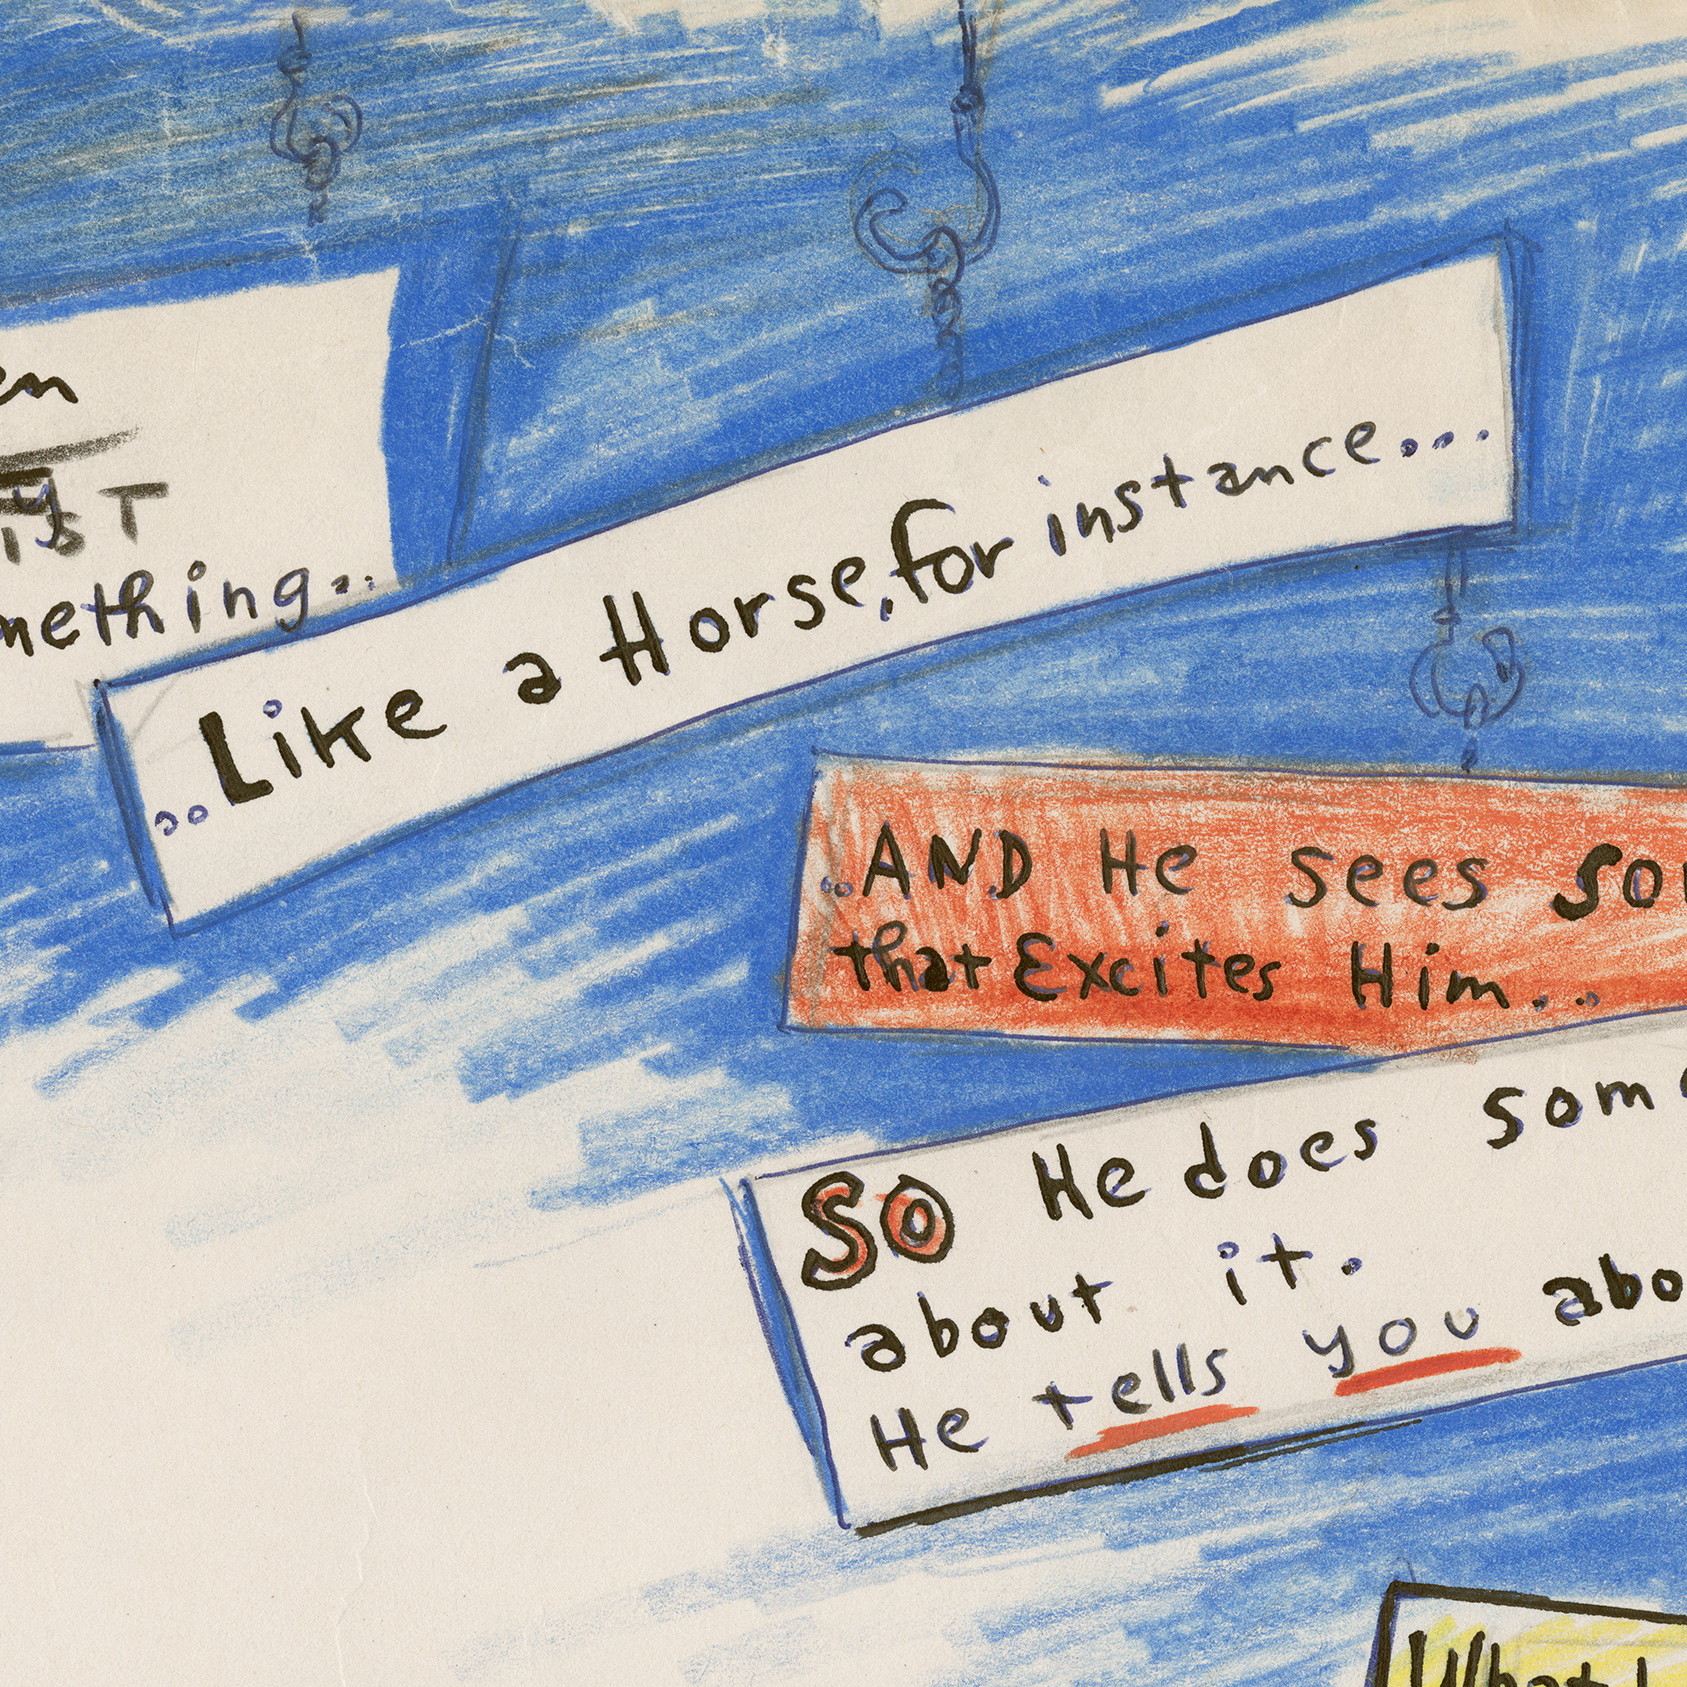 en
IST
mething...
..Like a Horse, for instance...
..AND He sees so
that Excites Him...
SO He does som
about it.
He tells you abo
What